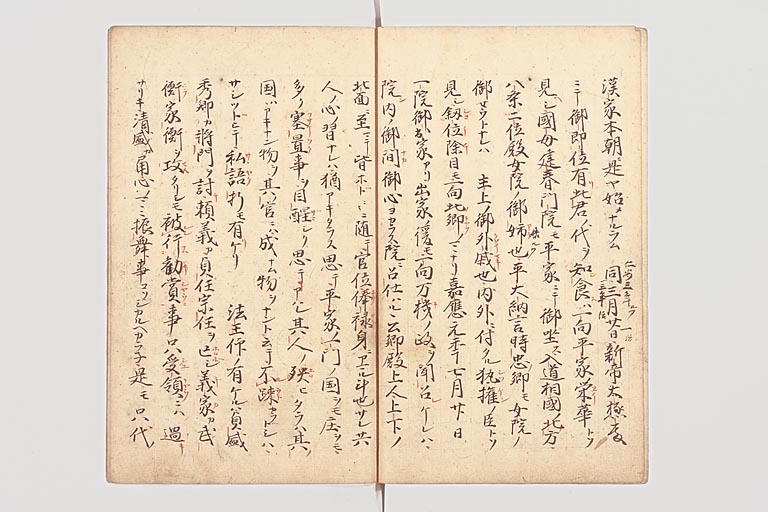 漢家本朝是ヤ始メナルラム 同三月廿日新帝大極殿
ニテ御即位有此君ノ代ヲ知食ハ一向平家ノ栄華トソ
見シ國母建春門院モ平家ニテ御坐ス入道相國ノ北方
八条二位殿女院ノ御姉也平大納言時忠卿モ女院ノ
御セウトナレハ 主上ノ御外戚也内外ニ付タル執権ノ臣トソ
見シ叙位除目モ一向此卿ノマヽナリ嘉應元年七月廿日
一院御出家アリ出家ノ後モ一向万機ノ政ヲ聞召ケレハ
院内ノ御間御心ヨカラス院ニ召仕ハルヽ公卿殿上人上下ノ
北面ニ至マテ皆ホトニ随テ官位俸禄身ニアマル計也サレ共
人ノ心ノ習ナレハ猶アキタラス思テ平家ノ一門ノ国ヲモ庄ヲモ
多ク塞置事ヲ目醒シク思テアハレ其人ノ殃ヒタラハ其
国ハアキナン物ヲ其官ニハ成ナム物ヲナント云テ不踈カラトシハ
サヽレツトニテ私語折モ有ケリ 法王仰ノ有ケルハ貞盛
秀郷カ将門ヲ討頼義カ貞任宗任ヲ亡シ義家カ武
衡家衡ヲ攻タリシモ被行勧賞事ハ受領ニハ過
サリキ清盛カ雅心ノマヽニ振舞事コソシカルヘカラネ是モ只代